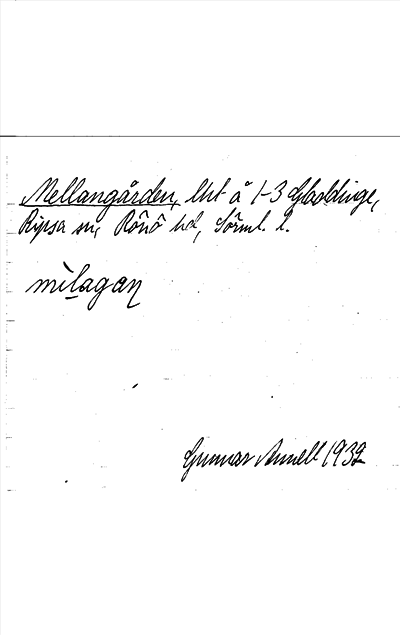 Mellangården, lht å 1-3 Gladdinge,
Ripsa sn, Rönö hd, Sörml. l.
mìlagaṇ
Gunnar Annell 1932